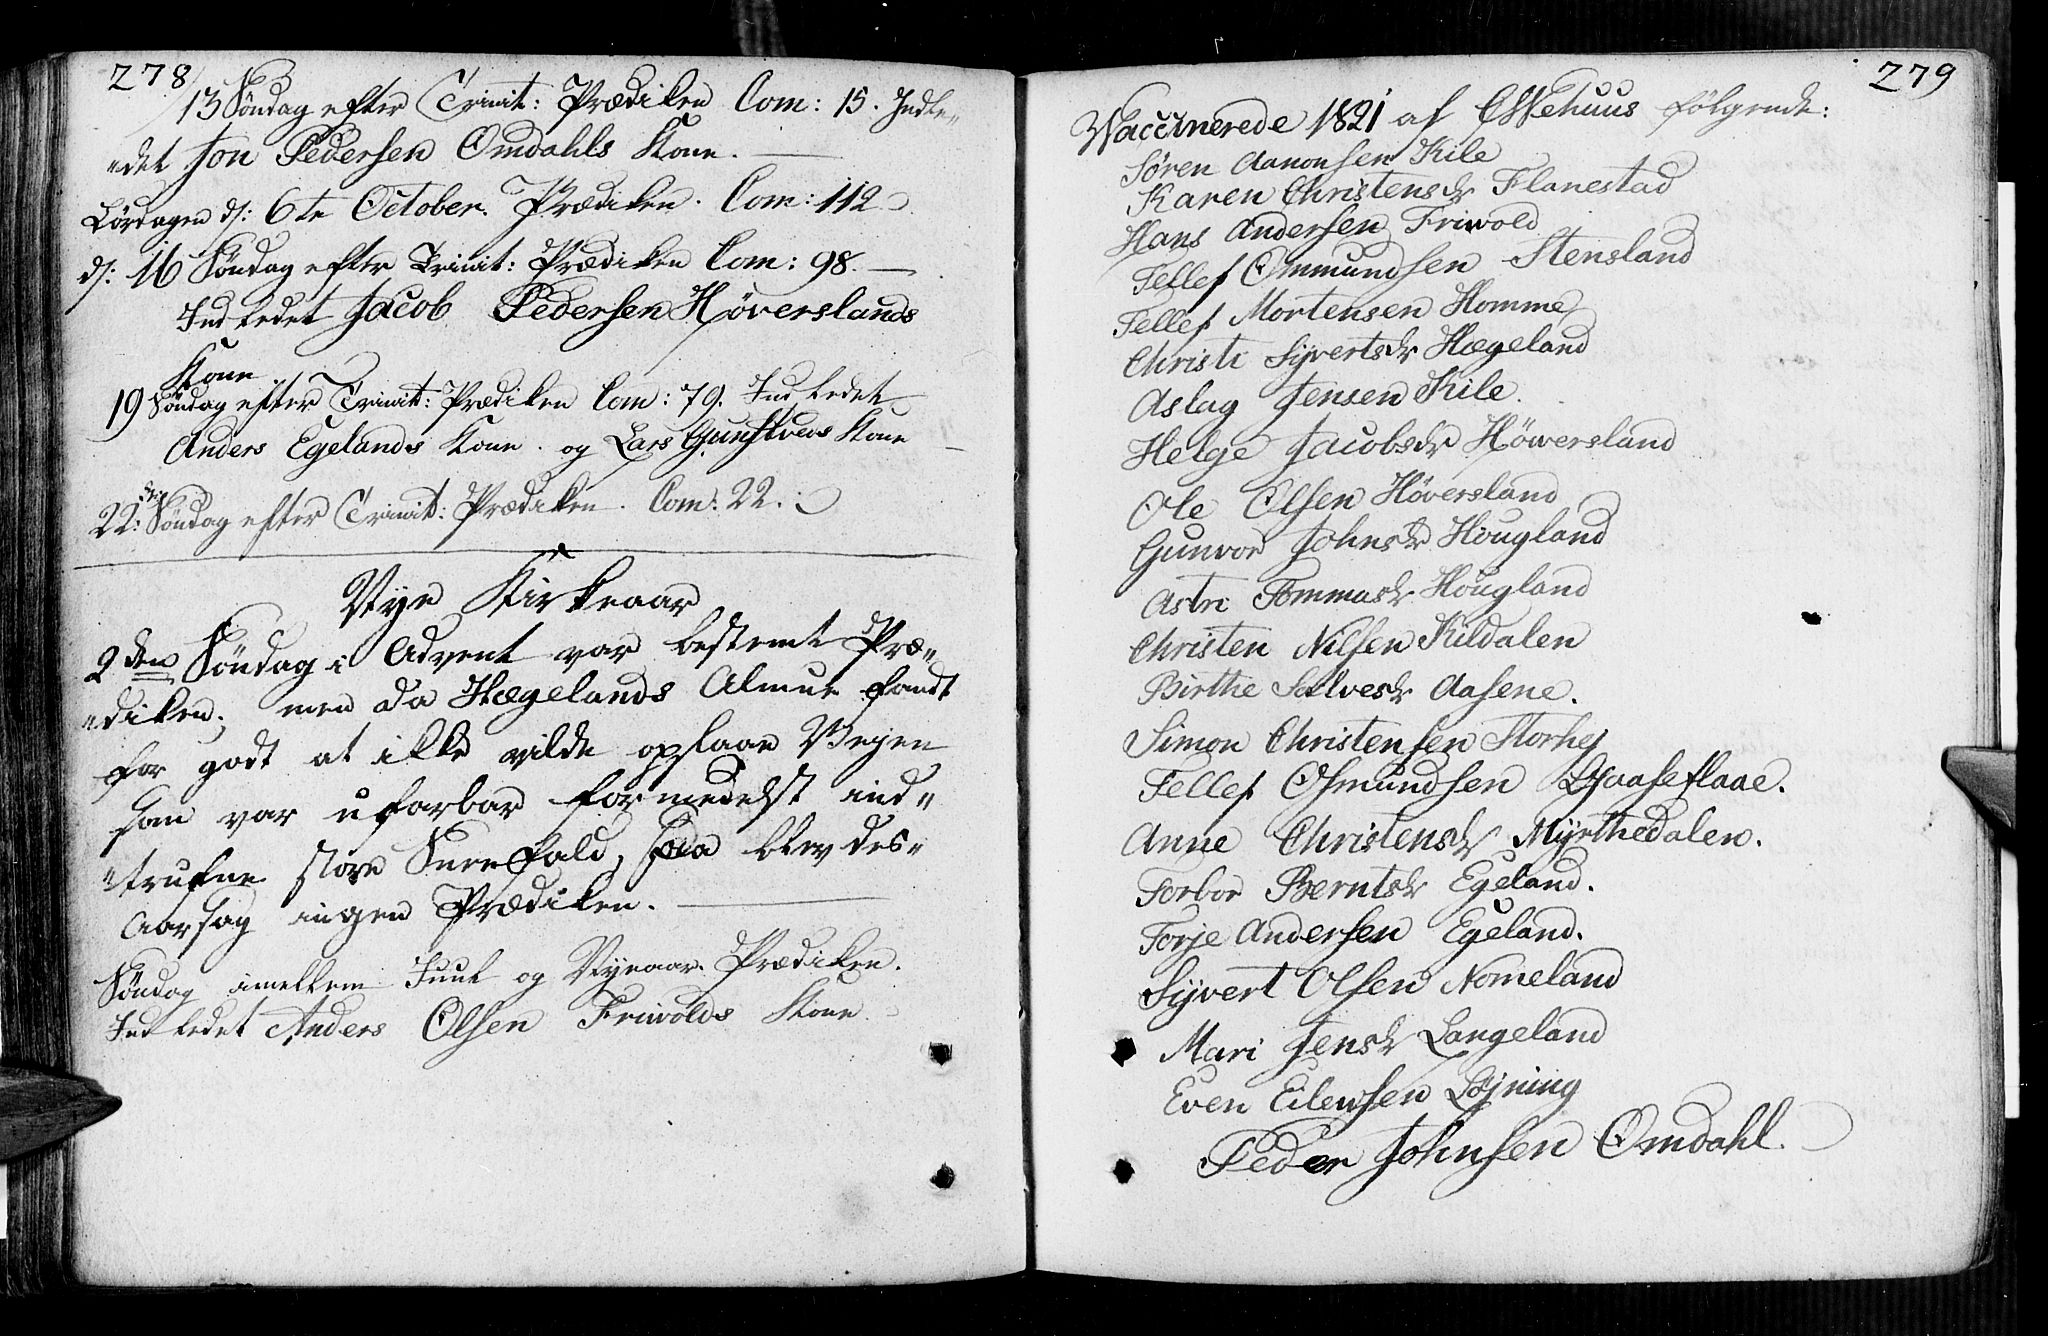 278
13 Søndag efter Trinit: Prædiken Com: 15. Indle„
„det Jon Pedersen Omdahls Kone. —
Lørdagen d: 6te October. Prædiken. Com: 112
d: 16 Søndag efter Trinit: Prædiken Com: 98. —
Indledet Jacob Pedersen Høverslands
Kone
19 Søndag efter Trinit: Prædiken Com: 79. Indledet
Anders Egelands Kone. og Lars Gunstveds Kone —
22: den Søndag efter Trinit: Prædiken. Com: 22.
Nye Kirkeaar
2den Søndag i Advent var bestemt Præ„
„diken; men da Hægelands Almue fandt
for godt at ikke vilde opslaae Vejen
som var ufarbar formedelst ind„
„trufne store Sneefald, saa blev des„
Aarsag ingen Prædiken. —
Søndag imellem Juul og Nyeaar. Prædiken.
Indledet Anders Olsen Friwolds Kone.
279
Waccinerede 1821 af følgende:
Søren Aanonsen Kile
Karen Christensdr Flanestad
Hans Andersen Friwold
Tellef Ommundsen Stensland
Tellef Mortensen Homme
Christi Syvertsdr Hægeland
Aslag Jensen Kile.
Helge Jacobsdr Höwersland
Ole Olsen Höversland
Gunvor Johnsdr Hougland
Astri Tommasdr Hougland
Christen Nilsen Kildalen
Birthe Salvesdr Aasene.
Simon Christensen Storhej
Tellef Osmundsen Gaaseflaae.
Anne Christensdr Myrthedalen.
Torbor Berntsdr Egeland.
Torje Andersen Egeland.
Syvert Olsen Nomeland
Mari Jensdr Langeland
Even Eilewsen Løjning
Peder Johnsen Omdahl.